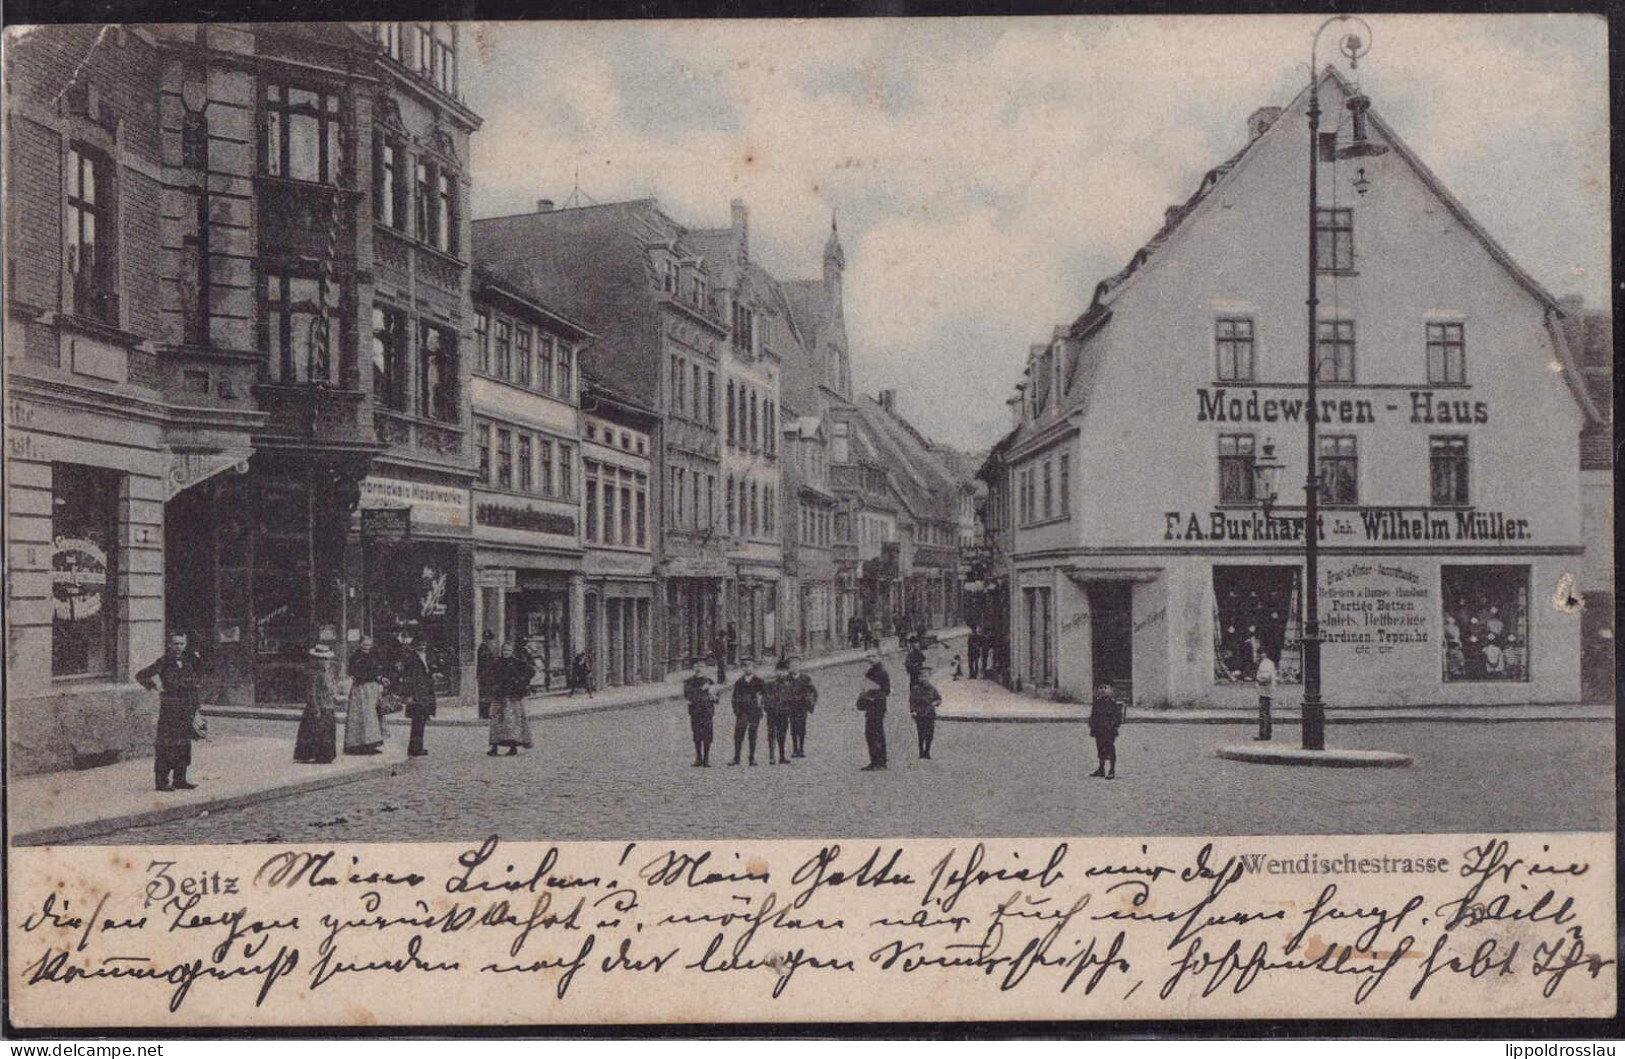 Modewaren - Haus
F.A. Burkhardt Jnh. Wilhelm Müller.
Fertige Betten
Inlets, Bettbezüge
Gardinen, Teppiche
etc etc
Zeitz
Wendischestrasse
Meine Lieben! Mein Gatte schrieb mir daß Ihr in
diesen Tagen zurückkehrt u. möchten wir Euch unsern herzl. Will-
kommgruß senden nach der langen Sommerfrische, hoffentlich habt Ihr
lippoldrosslau